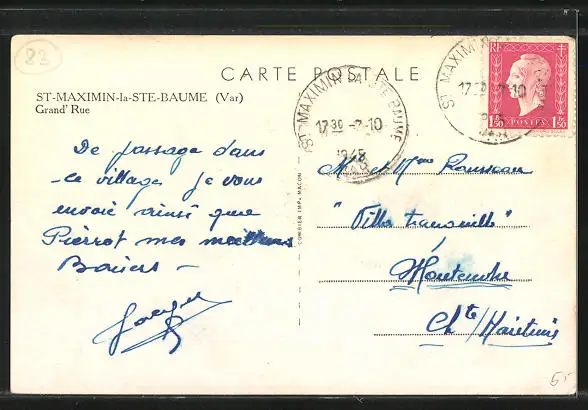 83
CARTE POSTALE
ST-MAXIMIN-la-STE-BAUME (Var)
Grand' Rue
ST MAXIMIN LA STE BAUME
17 30 -7-10
1945
VAR
ST MAXIMIN
17 30 -7-10
RF
1F50 POSTES 1F50
De passage dans
ce village je vous
envoie ainsi que
Pierrot mes meilleurs
Baisers -
COMBIER IMP. MACON
Mr et Mme Rousseau
"Villa tranquille"
à
Montendre
Chte/Maritimes
5-